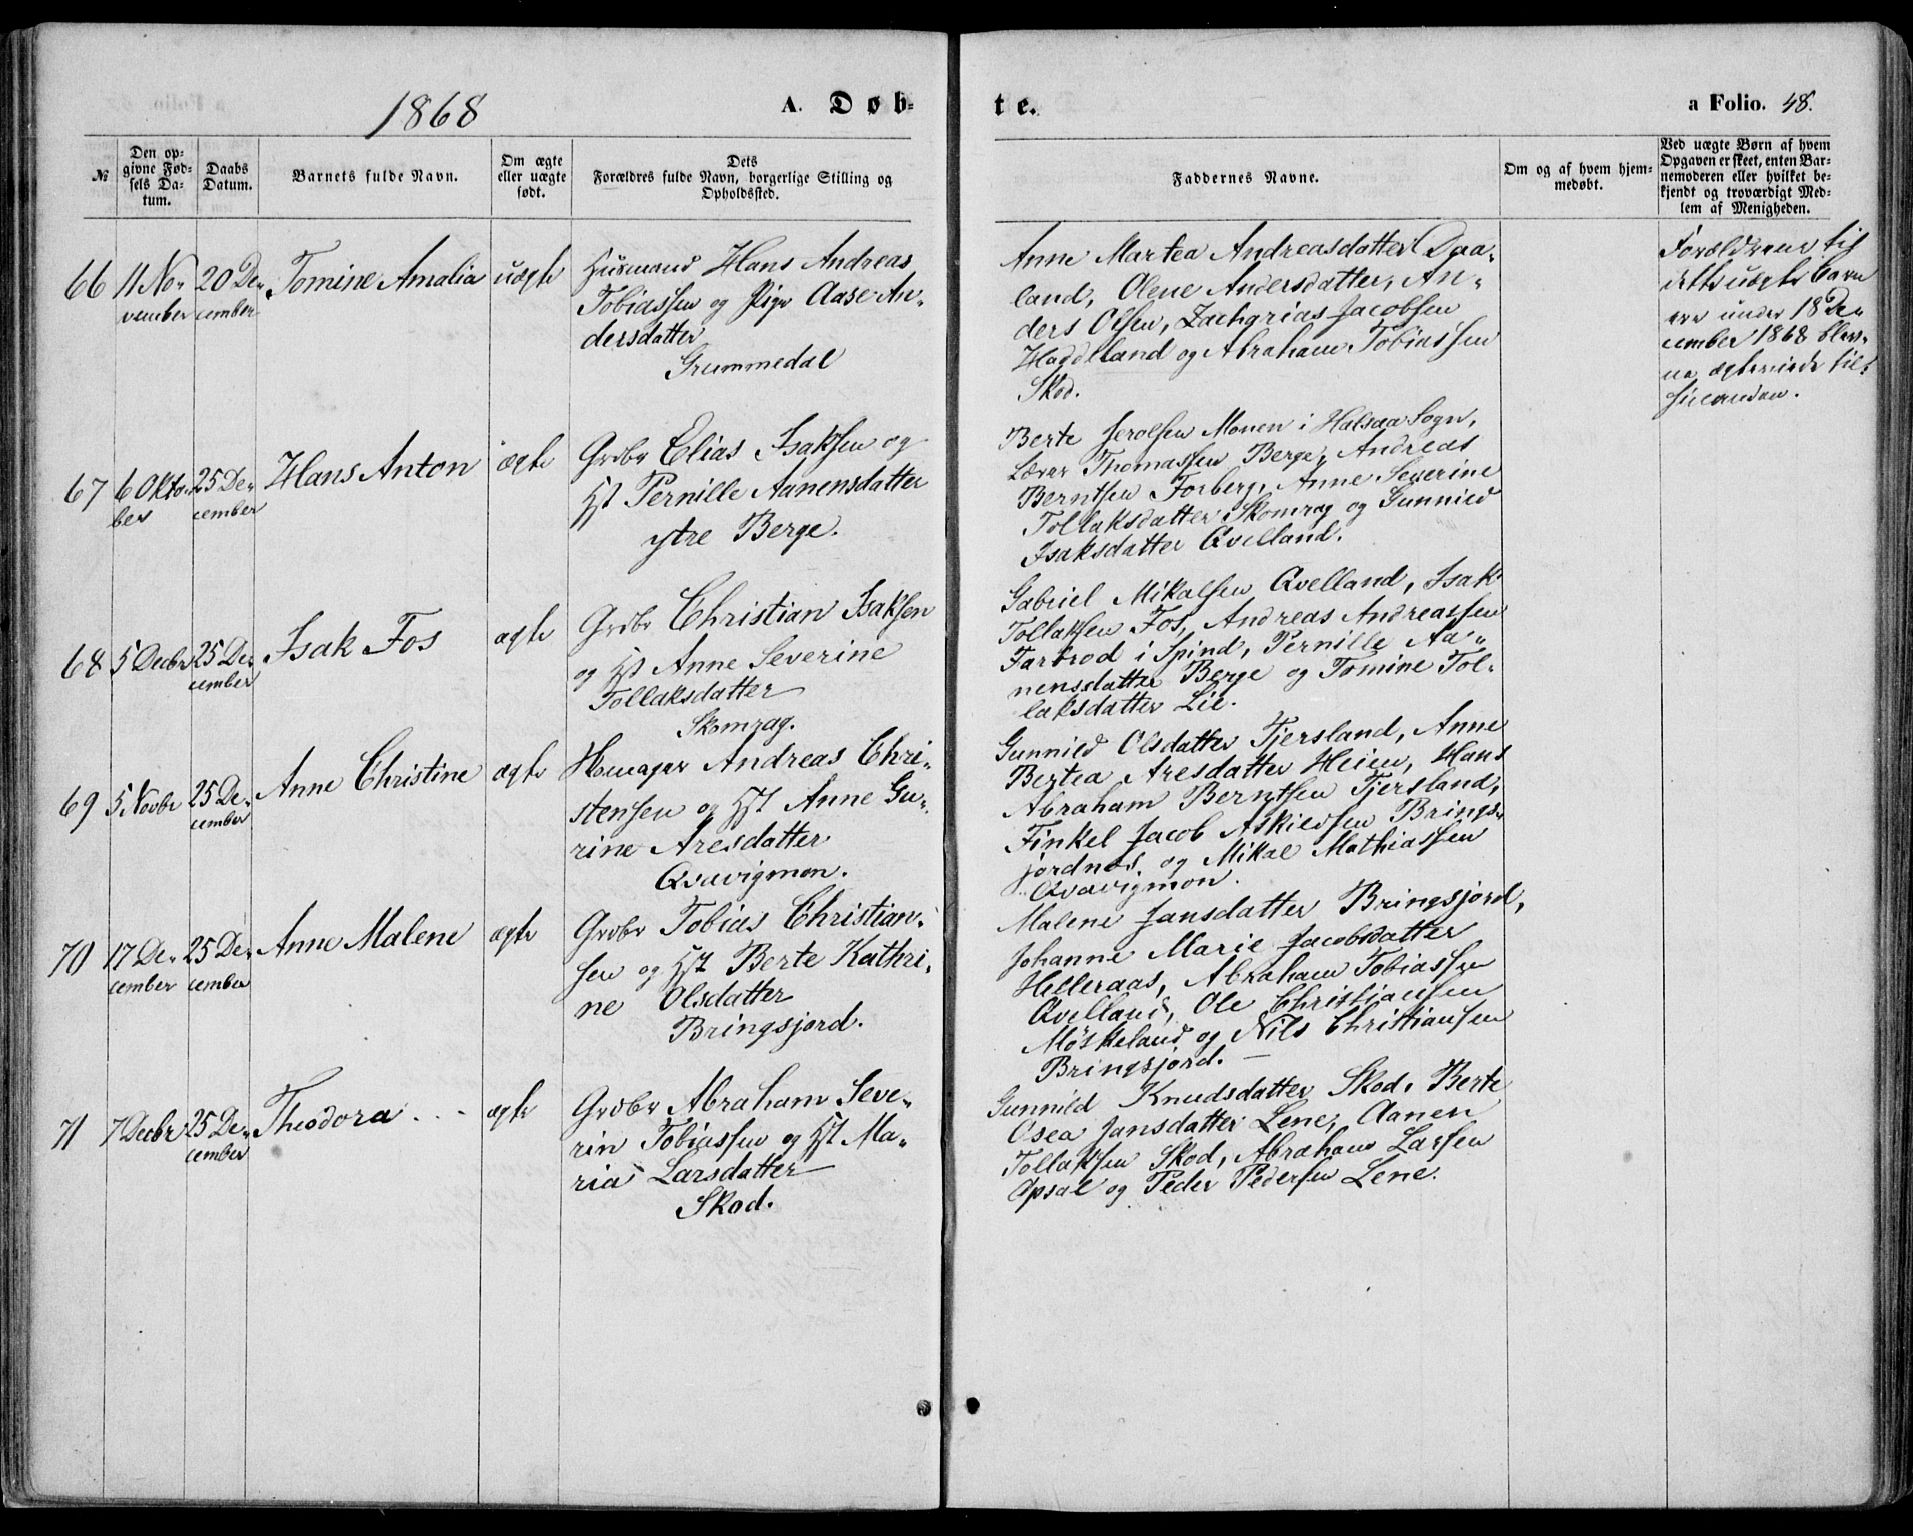 1868
A. Døb-
te.
a Folio. 48.
№
Den op-
givne Fød-
sels Da-
tum.
Daabs
Datum.
Barnets fulde Navn.
Om ægte
eller uægte
født.
Dets
Forældres fulde Navn, borgerlige Stilling og
Opholdssted.
Faddernes Navne.
Om og af hvem hjem-
medøbt.
Ved uægte Børn af hvem
Opgaven er skeet, enten Bar-
nemoderen eller hvilket be-
kjendt og troværdigt Med-
lem af Menigheden.
66
11 No-
vember
20 De-
cember
Tomine Amalia
uægte
Husmand Hans Andreas
Tobiassen og Pige Aase An-
dersdatter
Grummedal
Anne Martea Andreasdatter Daa-
land, Olene Andersdatter, An-
ders Olsen, Zachgrias Jacobsen
Haddeland og Abraham Tobiassen
Skod.
Forældrene til
dette uægte Barn
ere under 18 De-
cember 1868 blev-
ne ægteviede til
hinanden.
67
6 Okto-
ber
25 De-
cember
Hans Anton
ægte
Grdbr Elias Isaksen og
Hst Pernille Aanensdatter
ytre Berge.
Berte Jerolsen Monen i Halsaa Sogn,
Lærer Thomassen Berge, Andreas
Berntsen Forberg, Anne Severine
Tollaksdatter Skomrag og Gunnild
Isaksdatter Qvelland.
68
5 Decbr
25 De-
cember
Isak Fos
ægte
Grdbr Christian Isaksen
og Hst Anne Severine
Tollaksdatter
Skomrag.
Gabriel Mikalsen Qvelland, Isak
Tollaksen Fos, Andreas Andreassen
Farbrod i Spind, Pernille Aa-
nensdatter Berge og Tomine Tol-
laksdatter Lie.
69
5 Novbr
25 De-
cember
Anne Christine
ægte
Andreas Chri-
stensen og Hst Anne Gu-
rine Aresdatter
Qvavigmon.
Gunnild Olsdatter Tjersland, Anne
Bertea Aresdatter Heien, Hans
Abraham Berntsen Tjersland,
Finkel Jacob Askildsen Brings-
jordnes, og Mikal Mathiassen
Qvavigmon.
70
17 De-
cember
25 De-
cember
Anne Malene
ægte
Grdbr Tobias Christian-
sen og Hst Berte Kathri-
ne Olsdatter
Bringsjord.
Malene Jansdatter Bringsjord,
Johanne Marie Jacobsdatter
Helleraas, Abraham Tobiassen
Qvelland, Ole Christiansen
Møskeland og Nils Christiansen
Bringsjord.
71
7 Decbr
25 De-
cember
Theodora
ægte
Grdbr Abraham Seve-
rin Tobiassen og Hst Ma-
ria Larsdatter
Skod.
Gunnild Knudsdatter Skod, Berte
Osea Jansdatter Lene, Aanen
Tollaksen Skod, Abraham Larsen
Opsal og Peder Pedersen Lene.